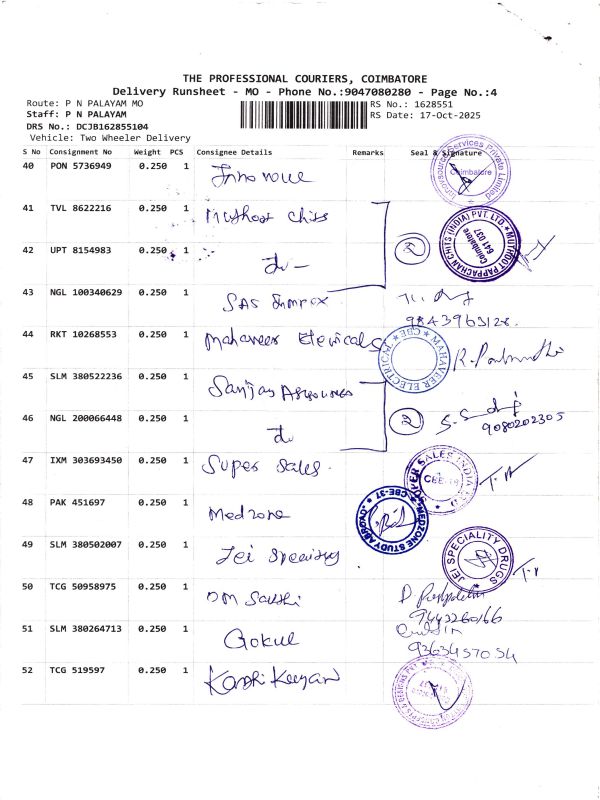 THE PROFESSIONAL COURIERS, COIMBATORE
Delivery Runsheet - MO - Phone No.:9047080280 - Page No.:4
Route: P N PALAYAM MO
RS No.: 1628551
Staff: P N PALAYAM
RS Date: 17-Oct-2025
DRS No.: DCJB162855104
Vehicle: Two Wheeler Delivery
S No Consignment No Weight PCS Consignee Details Remarks Seal & Signature
40 PON 5736949 0.250 1
Services Private Limited
Coimbatore
41 TVL 8622216 0.250 1 Muthoot Chits
MUTHOOT PAPPACHAN CHITS (INDIA) PVT. LTD
Coimbatore
641 037
42 UPT 8154983 0.250 1 do -
2
43 NGL 100340629 0.250 1 SAS Impex
9843963128.
44 RKT 10268553 0.250 1 Mahaveer Eletricals
MAHAVEER ELECTRICAL CBE
45 SLM 380522236 0.250 1 Sanjay
46 NGL 200066448 0.250 1 do
2
9080202305
47 IXM 303693450 0.250 1 Super Sales.
SALES INDIA
48 PAK 451697 0.250 1 Medzone
MEDZONE STUDY ABROAD CBE-37
49 SLM 380502007 0.250 1 Jei Speciality
JEI SPECIALITY DRUGS
50 TCG 50958975 0.250 1 DM Sakthi
9443260166
51 SLM 380264713 0.250 1 Gokul
9363457054
52 TCG 519597 0.250 1